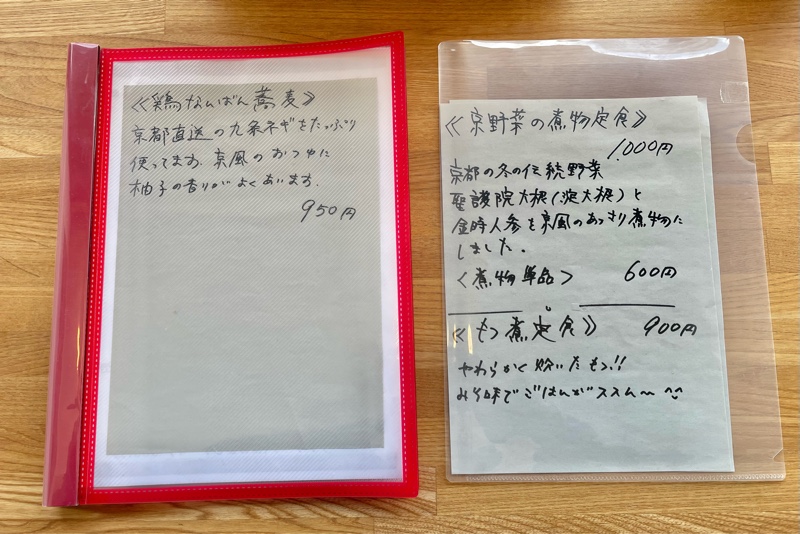 《鶏なんばん蕎麦》
京都直送の九条ネギをたっぷり
使ってます。京風のおつゆに
柚子の香りがよくあいます。
950円
《京野菜の煮物定食》
1,000円
京都の冬の伝統野菜
聖護院大根(淀大根)と
金時人参を京風のあっさり煮物に
しました。
〈煮物単品〉 600円
《もつ煮定食》 900円
やわらかく炊いたもつ!!
みそ味でごはんがススム〜 ^^